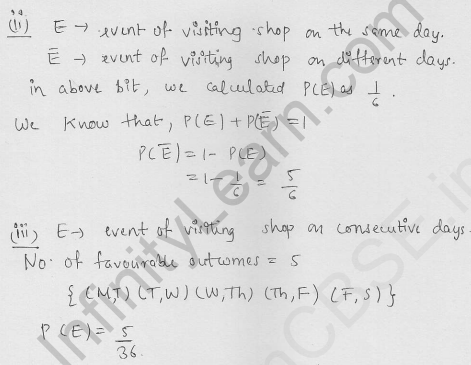 (ii) E → event of visiting shop on the same day.
Ē → event of visiting shop on different days.
in above bit, we calculated P(E) as 1/6.
We know that, P(E) + P(Ē) = 1
P(Ē) = 1 - P(E)
= 1 - 1/6 = 5/6
(iii) E → event of visiting shop on consecutive days.
No. of favourable outcomes = 5
{(M,T) (T,W) (W,Th) (Th,F) (F,S)}
P(E) = 5/36.
InfinityLearn.com
nCBSE.in